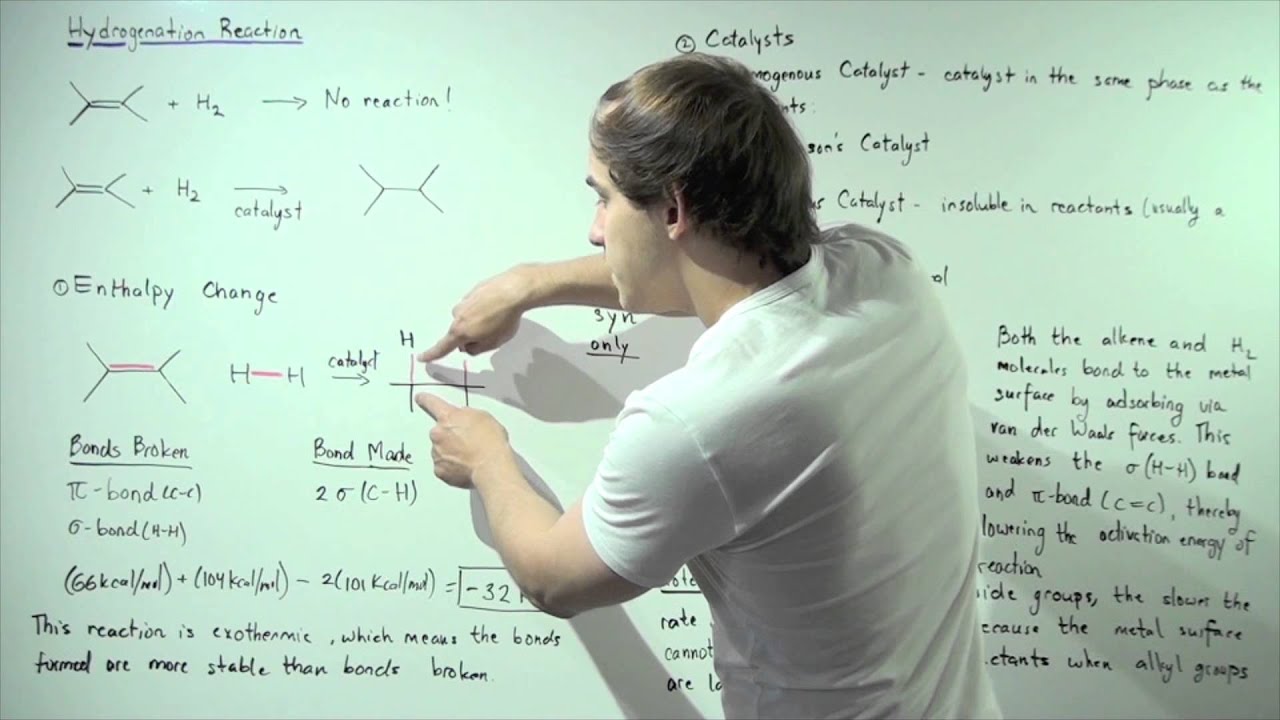 Hydrogenation Reaction
+ H2 → No reaction!
+ H2 → catalyst
① Enthalpy Change
H—H catalyst → H
Bonds Broken
π-bond (C-C)
σ-bond (H-H)
Bond Made
2 σ (C-H)
(66 kcal/mol) + (104 kcal/mol) - 2(101 kcal/mol) = -32
This reaction is exothermic, which means the bonds
formed are more stable than bonds broken.
② Catalysts
Catalyst - catalyst in the same phase as the
Catalyst
Catalyst - insoluble in reactants (usually a
syn
only
Both the alkene and H2
molecules bond to the metal
surface by adsorbing via
van der Waals forces. This
weakens the σ(H-H) bond
and π-bond (C=C), thereby
lowering the activation energy of
reaction
rate
cannot
are
groups, the slower the
the metal surface
when alkyl groups